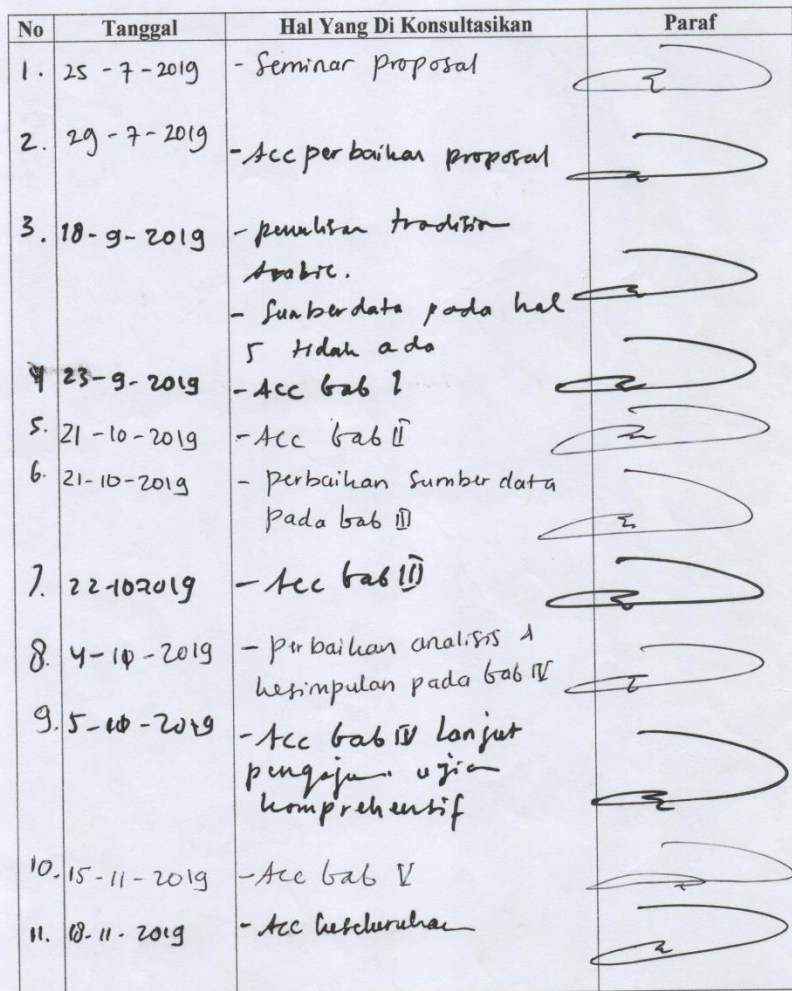 No Tanggal Hal Yang Di Konsultasikan Paraf
1. 25 - 7 - 2019 - Seminar proposal
2. 29 - 7 - 2019 - Acc perbaikan proposal
3. 18 - 9 - 2019 - penulisan
Arabic.
- Sumber data pada hal
5 tidak ada
4 23 - 9 - 2019 - Acc bab I
5. 21 - 10 - 2019 - Acc bab II
6. 21 - 10 - 2019 - perbaikan sumber data
pada bab III
7. 22-102019 - Acc bab III
8. 4 - 10 - 2019 - perbaikan analisis &
kesimpulan pada bab IV
9. 5 - 10 - 2019 - Acc bab IV lanjut
ujian
komprehensif
10. 15 - 11 - 2019 - Acc bab V
11. 18 - 11 - 2019 - Acc keseluruhan